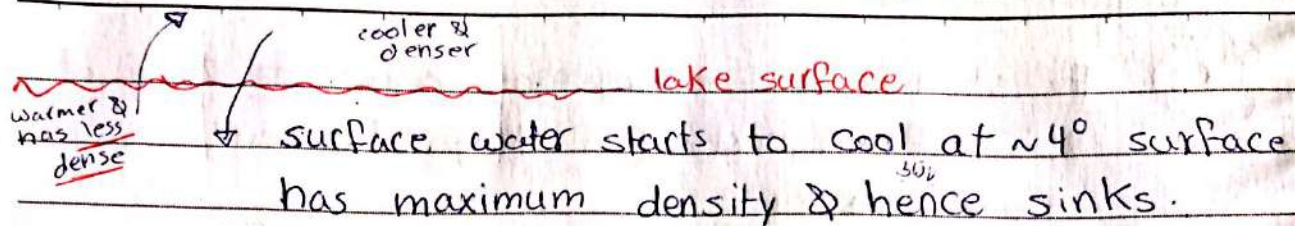 cooler &
denser
lake surface
warmer &
has less
dense
surface water starts to cool at ~4° surface
has maximum density & hence sinks.